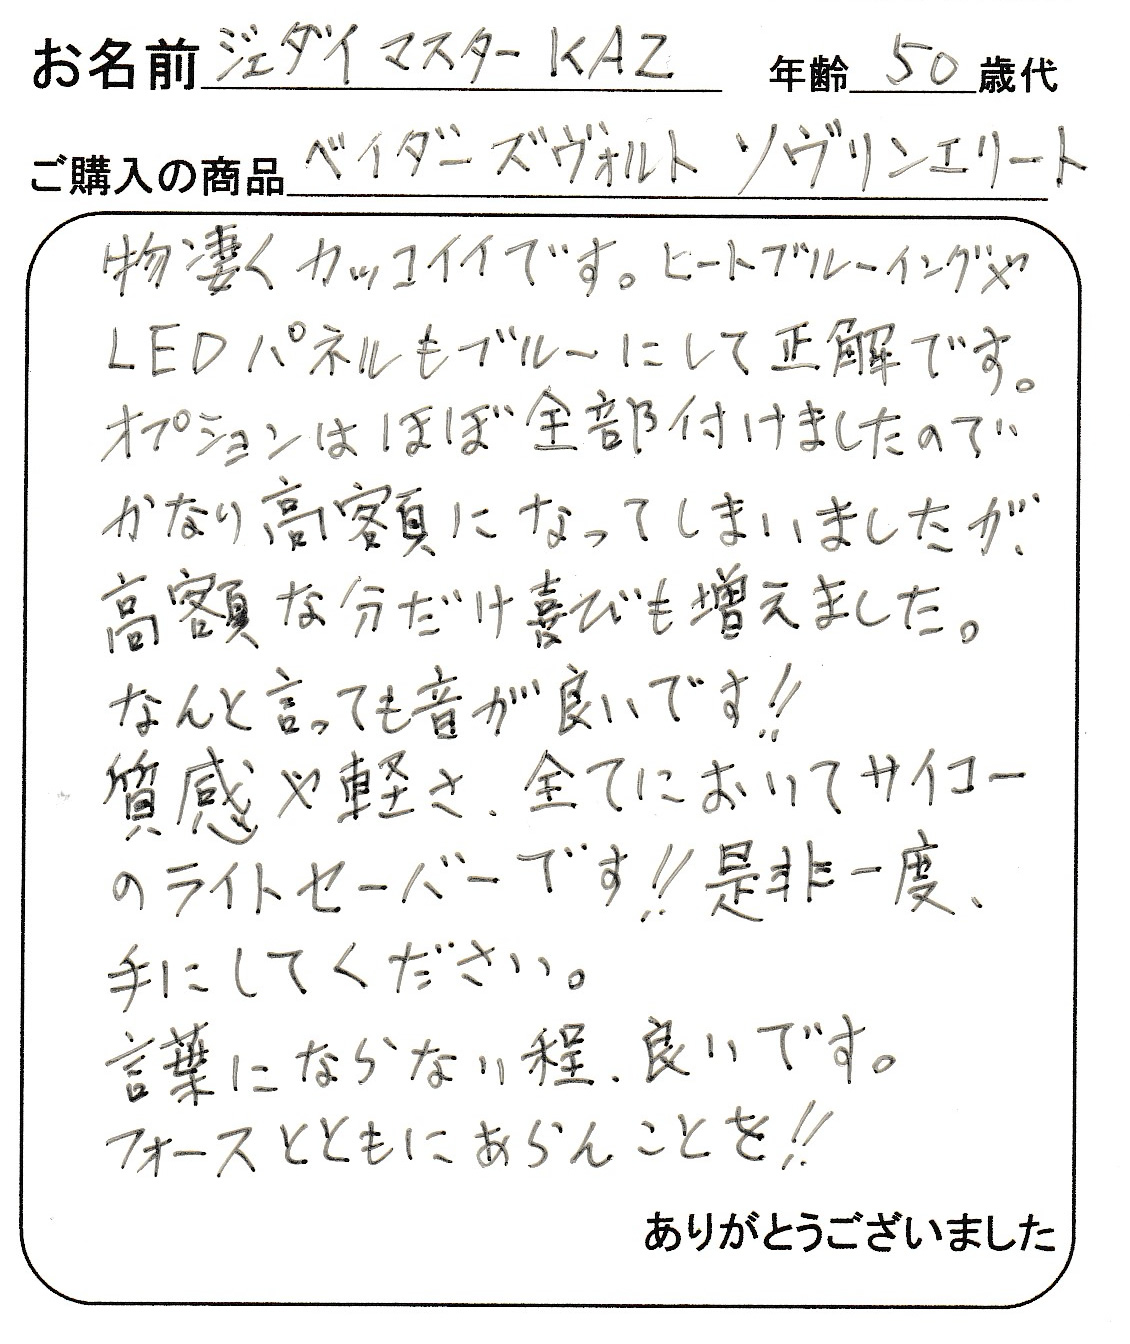 お名前 ジェダイマスターKAZ 年齢 50 歳代
ご購入の商品 ベイダーズヴォルト ソヴリンエリート
物凄くカッコイイです。ヒートブルーイングや
LEDパネルもブルーにして正解です。
オプションはほぼ全部付けましたので
かなり高額になってしまいましたが、
高額な分だけ喜びも増えました。
なんと言っても音が良いです!!
質感や軽さ、全てにおいてサイコー
のライトセーバーです!!是非一度、
手にしてください。
言葉にならない程、良いです。
フォースとともにあらんことを!!
ありがとうございました